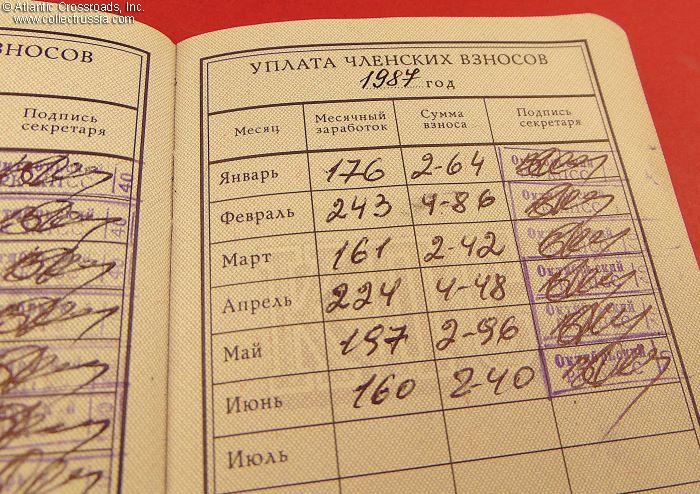 © Atlantic Crossroads, Inc.
www.collectrussia.com
ВЗНОСОВ
Подпись
секретаря
УПЛАТА ЧЛЕНСКИХ ВЗНОСОВ
1987 год
Месяц Месячный заработок Сумма взноса Подпись секретаря
Январь 176 2-64
Февраль 243 4-86
Март 161 2-42
Апрель 224 4-48 Октябрьский
Май 197 2-96
Июнь 160 2-40 Октябрьский
Июль